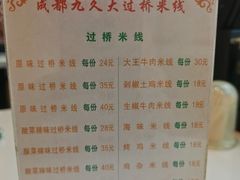 成都九久大过桥米线
过桥米线
原味过桥米线 每份24元 大王牛肉米线 每份30元
原味过桥米线 每份35元 剁椒土鸡米线 每份18元
原味过桥米线 每份40元 生椒牛肉米线 每份18元
酸菜辣味过桥米线 每份28元 海味米线 每份18元
酸菜辣味过桥米线 每份35元 烧鸡米线 每份18元
酸菜辣味过桥米线 每份40元 鸡杂米线 每份18元